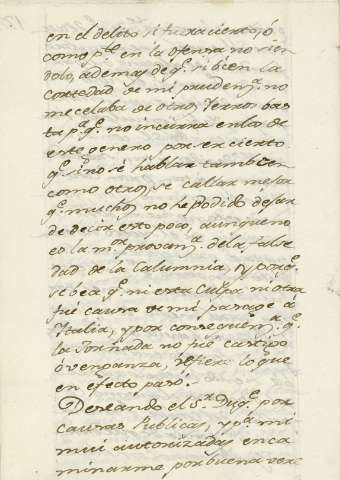 en el delito si fuera cierto, ó
como pte en la ofensa no sien
dolo, ademas de qe si bien la
cortedad de mi prudena no
me celaba de otros yerros bas
ta pa qe no incurra en los de
este genero por ser cierto
qe si no sé hablar tambien
como otros, se callar mejor
qe muchos, no he podido dejar
de decir esto poco, aunque no
es la mor provanza de la false
dad de la Calumnia, y porqe
se bea qe ni esta culpa ni otra
fué causa de mi pasage á
Italia, y por consequena qe
la Jornada no fué castigo
ó venganza, referé lo que
en efecto pasó.
Deseando el Sr Duqe por
causas Publicas, y pa mi
mui autorizadas enca
minarme por buena